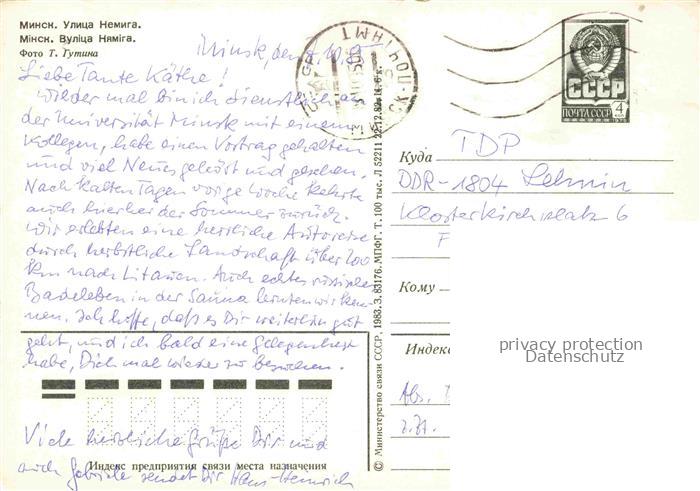 Минск. Улица Немига.
Мінск. Вуліца Няміга.
Фото Т. Гутина
Minsk, den
Liebe Tante Käthe!
wieder mal bin ich dienstlich an
der Universität Minsk mit einem
Kollegen, habe einen Vortrag gehalten
und viel Neues gehört und gesehen.
Nach kalten Tagen vorige Woche kehrte
auch hierher der Sommer zurück.
Wir erlebten eine herrliche Autoreise
durch herbstliche Landschaft über 200
km nach Litauen. Auch echtes russisches
Badeleben in der Sauna lernten wir ken-
nen. Ich hoffe, daß es Dir weiterhin gut
geht, und ich bald eine Gelegenheit
habe, Dich mal wieder zu besuchen.
Viele herzliche Grüße Dir und
auch Gabriele sendet Dir Hans-Heinrich
Индекс предприятия связи места назначения
© Министерство связи СССР, 1983. З. 83176. МПФГ. Т. 100 тыс. Л 52211 22.12.82
СССР
ПОЧТА СССР 4
МИНСК ПОЧТАМТ
Куда
TDP
DDR-1804 Lehnin
Klosterkirchplatz 6
F
Кому
Индекс
privacy protection
Datenschutz
Abs.
z.Zt.